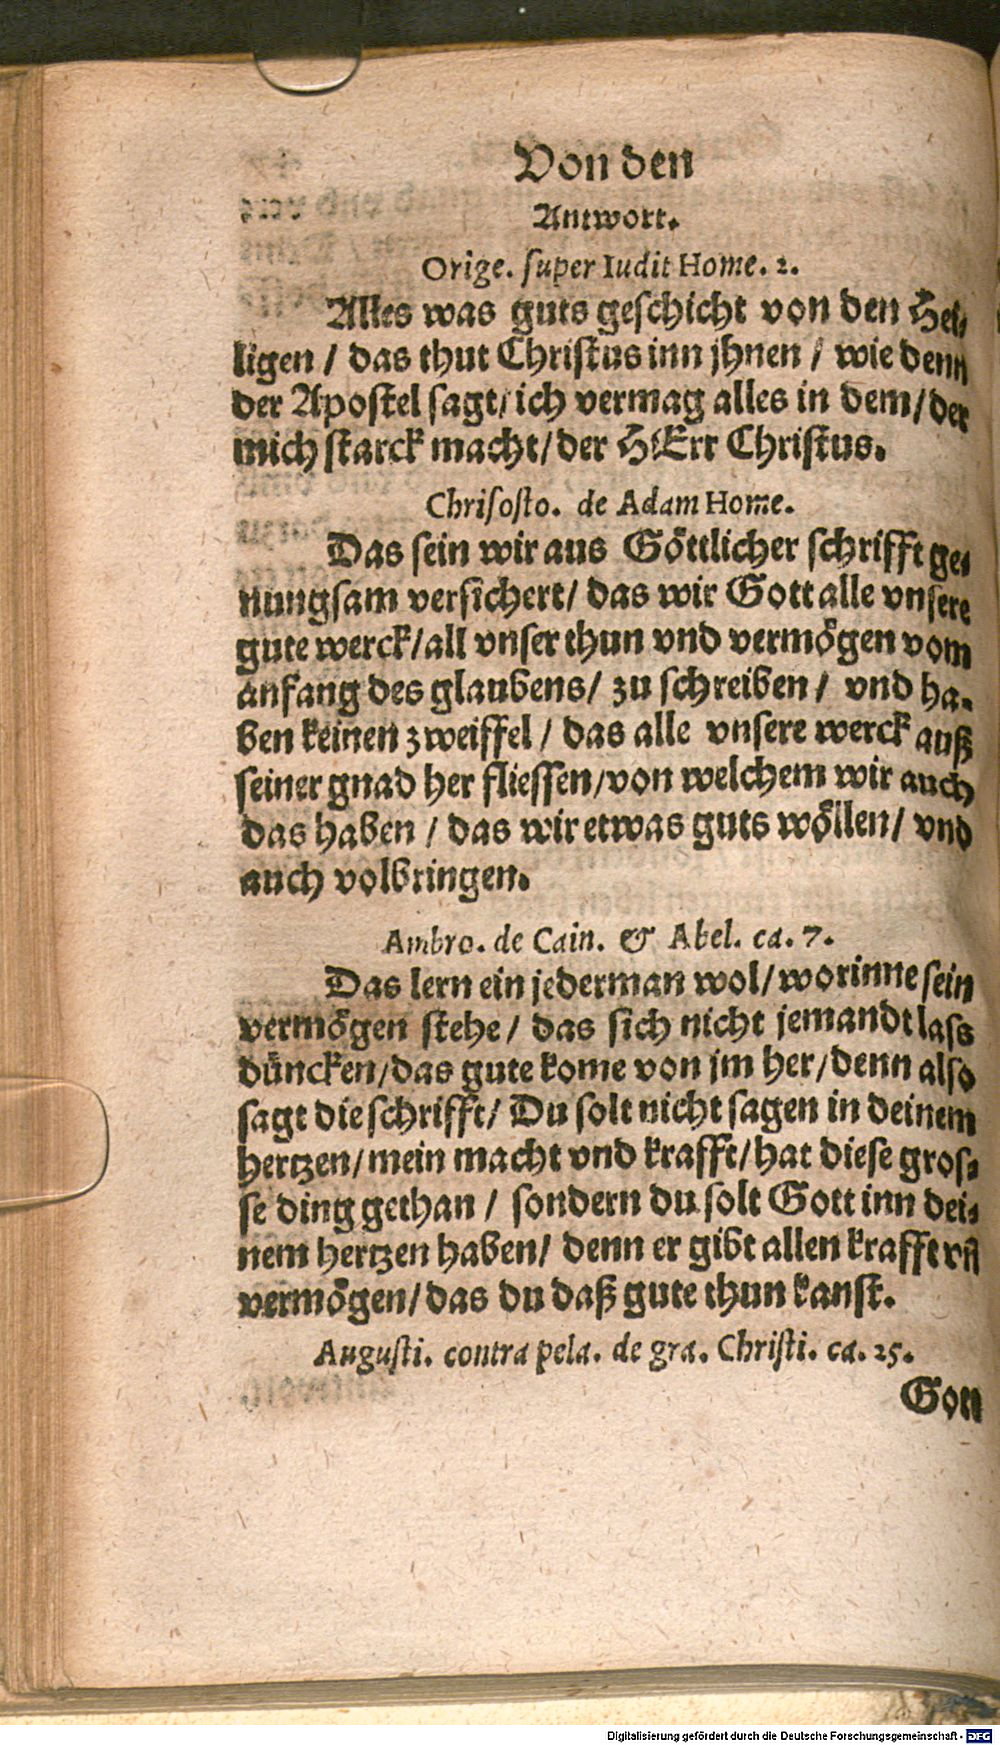 Von den
Antwort.
Orige. super Iudit Home. 2.
Alles was guts geschicht von den Hei-
ligen / das thut Christus inn jhnen / wie denn
der Apostel sagt/ ich vermag alles in dem/ der
mich starck macht/ der HErr Christus.
Chrisosto. de Adam Home.
Das sein wir aus Göttlicher schrifft ge-
nungsam versichert/ das wir Gott alle vnsere
gute werck/ all vnser thun vnd vermögen vom
anfang des glaubens/ zu schreiben / vnd ha-
ben keinen zweiffel / das alle vnsere werck auß
seiner gnad her fliessen/ von welchem wir auch
das haben / das wir etwas guts wöllen/ vnd
auch volbringen.
Ambro. de Cain. & Abel. ca. 7.
Das lern ein jederman wol/ worinne sein
vermögen stehe / das sich nicht jemandt lass
düncken/ das gute kome von jm her/ denn also
sagt die schrifft/ Du solt nicht sagen in deinem
hertzen/ mein macht vnd krafft/ hat diese gros-
se ding gethan / sondern du solt Gott inn dei-
nem hertzen haben/ denn er gibt allen krafft vñ
vermögen/ das du daß gute thun kanst.
Augusti. contra pela. de gra. Christi. ca. 25.
Gott
Digitalisierung gefördert durch die Deutsche Forschungsgemeinschaft - DFG